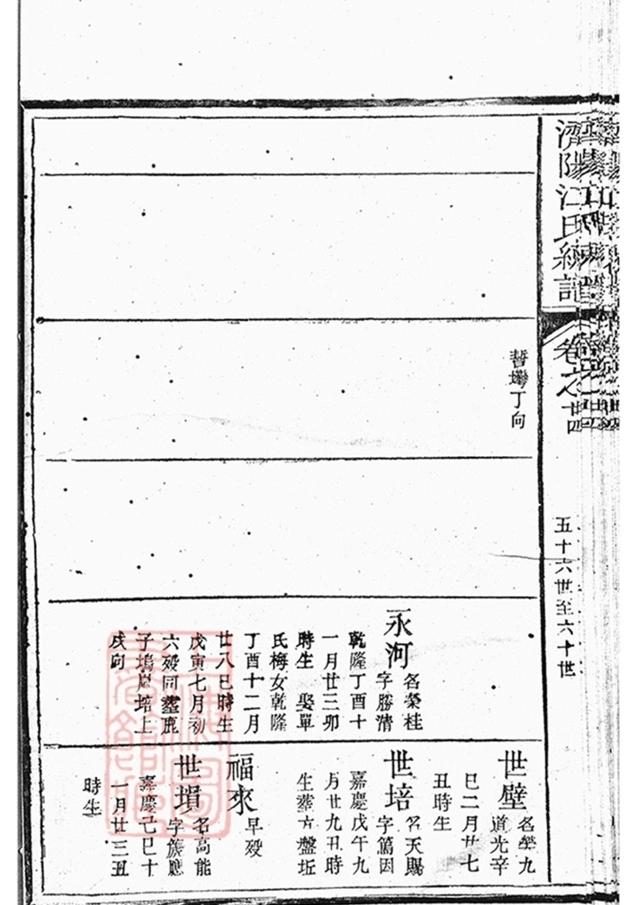 濟陽江氏統譜
卷之廿四
五十六世至六十世
塋丁向
永河
名榮桂
字勝清
乾隆丁酉十
一月廿三卯
時生 娶單
氏梅女乾隆
丁酉十二月
廿八巳時生
戊寅七月初
六歿同塟鹿
子塢
培上
戌向
世壁
名榮九
道光辛
巳二月廿七
丑時生
世培
名天賜
字篤因
嘉慶戊午九
月廿九丑時
生塟方盤坵
福來
早歿
世塤
名高能
字族應
嘉慶己巳十
一月廿三丑
時生